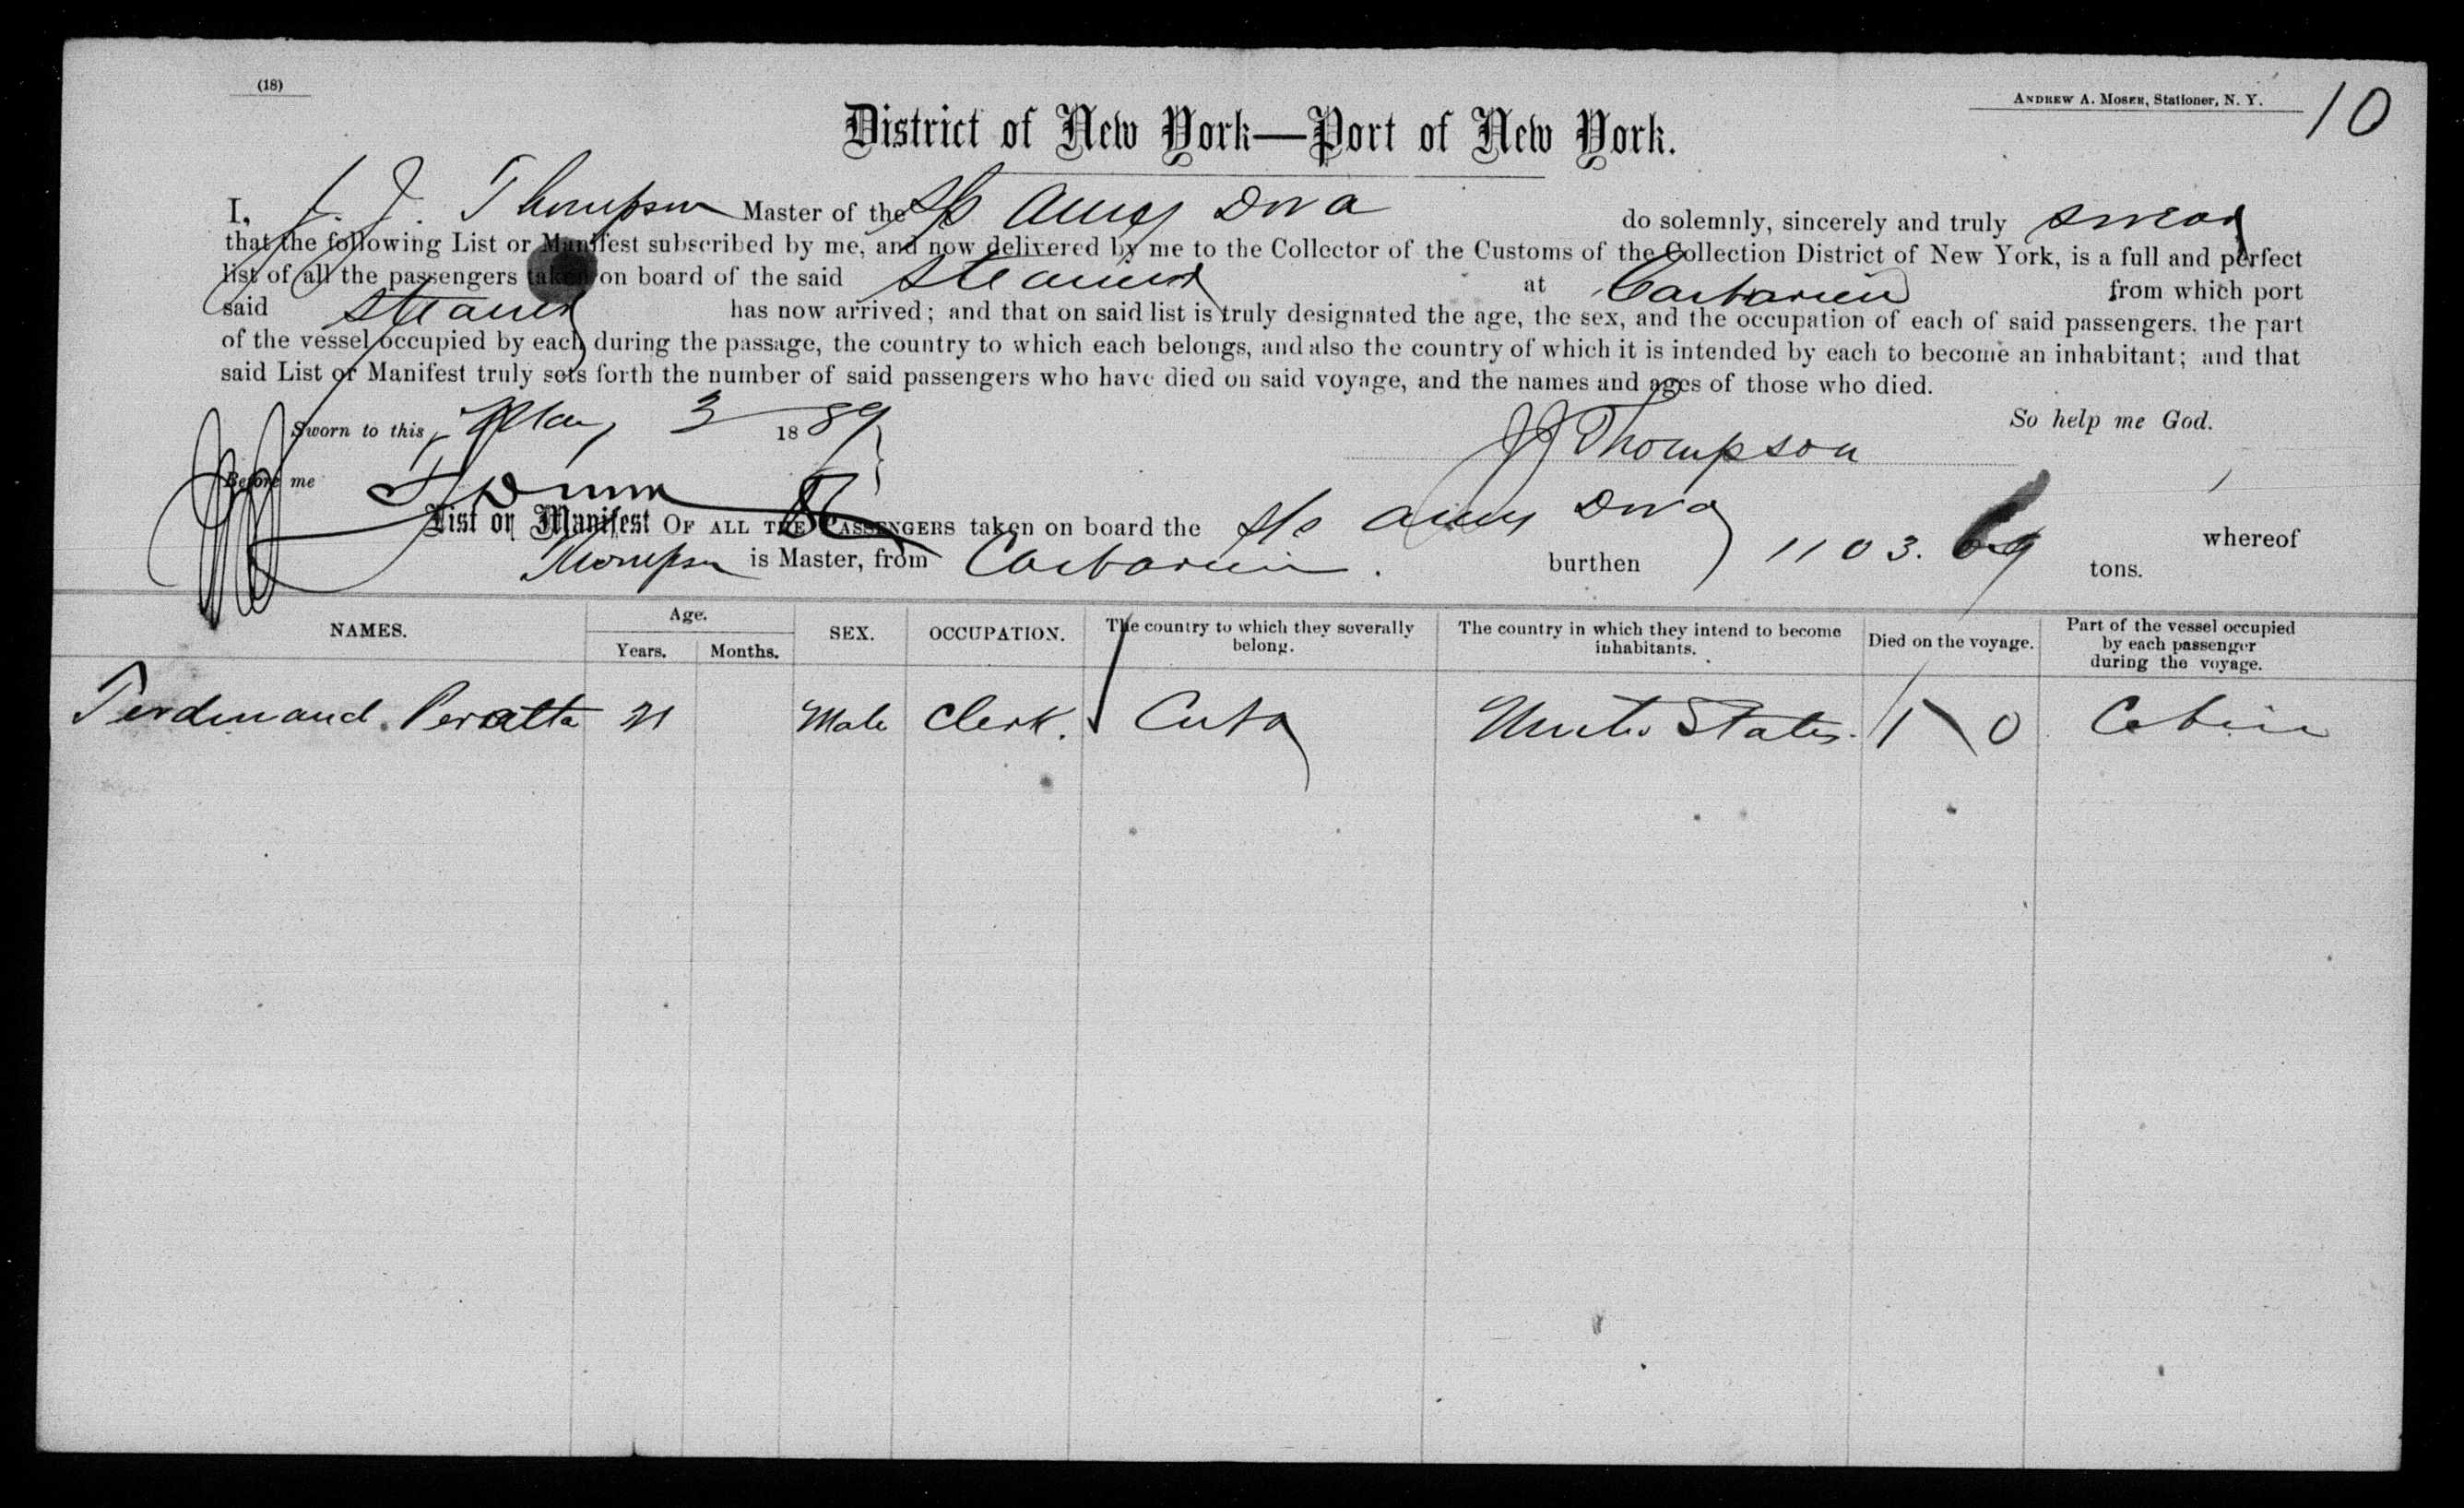 (18)
ANDREW A. MOSER, Stationer, N. Y.
10
District of New York—Port of New York.
I, J. J. Thompson Master of the S/s Amy Dora do solemnly, sincerely and truly swear
that the following List or Manifest subscribed by me, and now delivered by me to the Collector of the Customs of the Collection District of New York, is a full and perfect
list of all the passengers taken on board of the said Steamer at Caibarien from which port
said Steamer has now arrived; and that on said list is truly designated the age, the sex, and the occupation of each of said passengers, the part
of the vessel occupied by each during the passage, the country to which each belongs, and also the country of which it is intended by each to become an inhabitant; and that
said List or Manifest truly sets forth the number of said passengers who have died on said voyage, and the names and ages of those who died.
So help me God.
Sworn to this May 3 1889
J J Thompson
Before me
List or Manifest OF ALL THE PASSENGERS taken on board the S/s Amy Dora whereof
Thompson is Master, from Caibarien. burthen 1103. 69 tons.
NAMES. Age. Years. Months. SEX. OCCUPATION. The country to which they severally belong. The country in which they intend to become inhabitants. Died on the voyage. Part of the vessel occupied by each passenger during the voyage.
Ferdinand Peralta 21 Male Clerk. Cuba United States. 0 Cabin